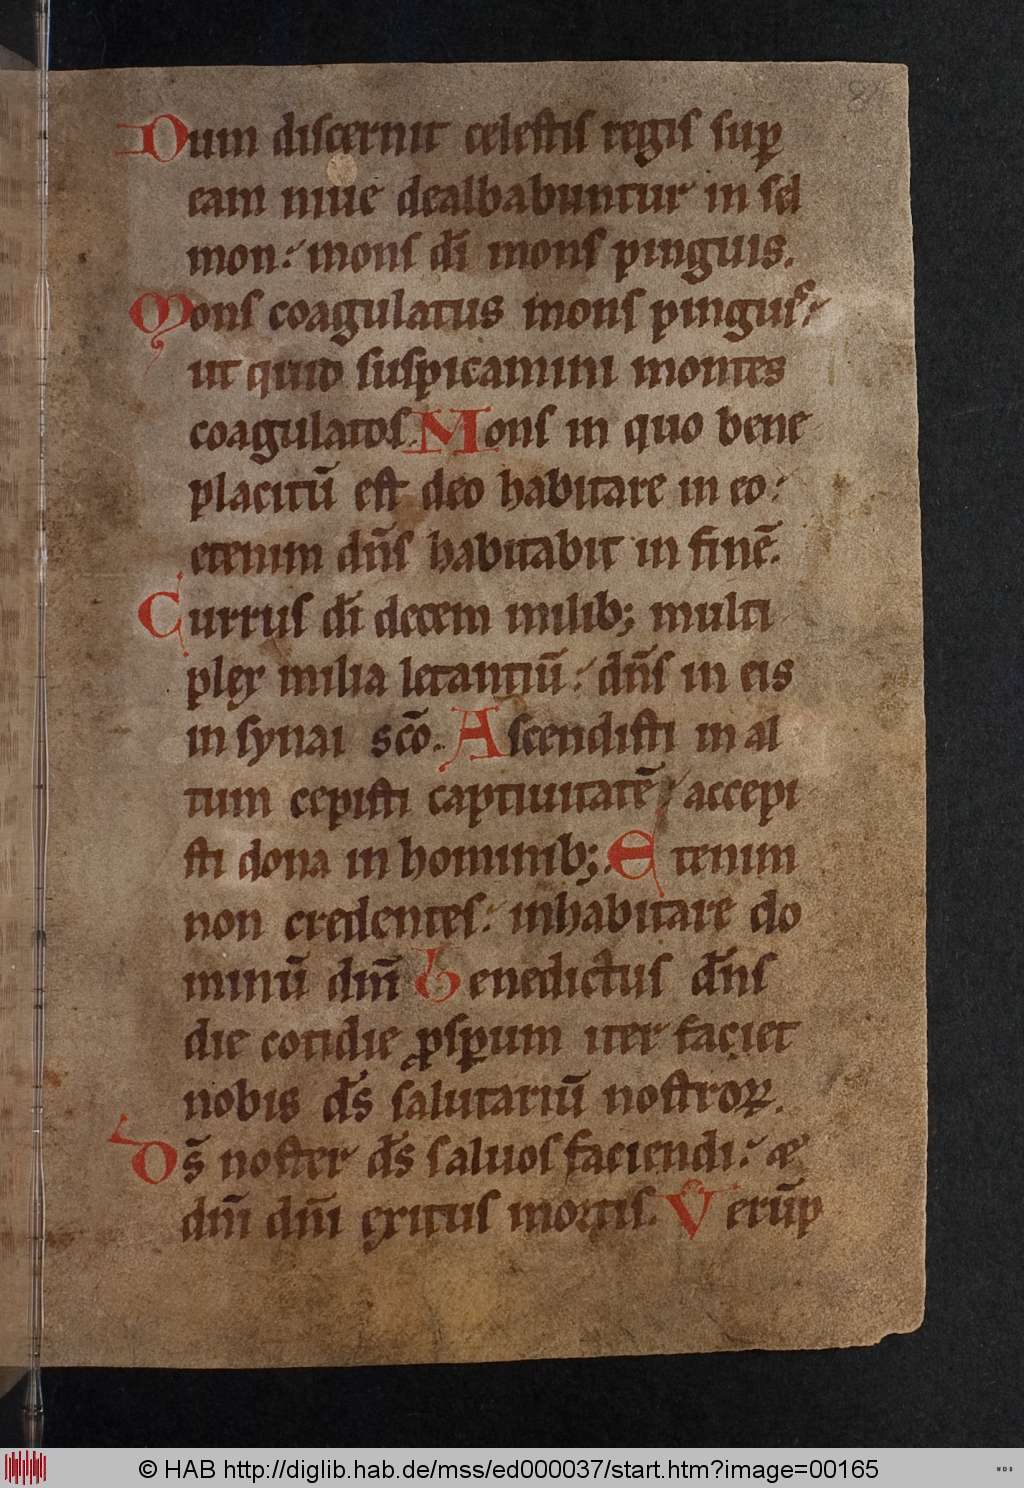 Dum discernit celestis regis sup̱
eam niue dealbabuntur in sel
mon: mons di̅ mons pinguis.
Mons coagulatus mons pinguis:
ut quid suspicamini montes
coagulatos. Mons in quo bene
placitu̅ est deo habitare in eo:
etenim dn̅s habitabit in fine̅.
Currus di̅ decem milib; multi
plex milia letantiu̅: dn̅s in eis
in synai sc̅o. Ascendisti in al
tum cepisti captiuitate̅ / accepi
sti dona in hominib;. Etenim
non credentes: inhabitare do
minu̅ dm̅ Benedictus dn̅s
die cotidie ꝓsꝑum iter faciet
nobis ds̅ salutariu̅ nostroꝝ.
Ds̅ noster ds̅ saluos faciendi: &
dn̅i dn̅i exitus mortis. Veru̅p
© HAB http://diglib.hab.de/mss/ed000037/start.htm?image=00165